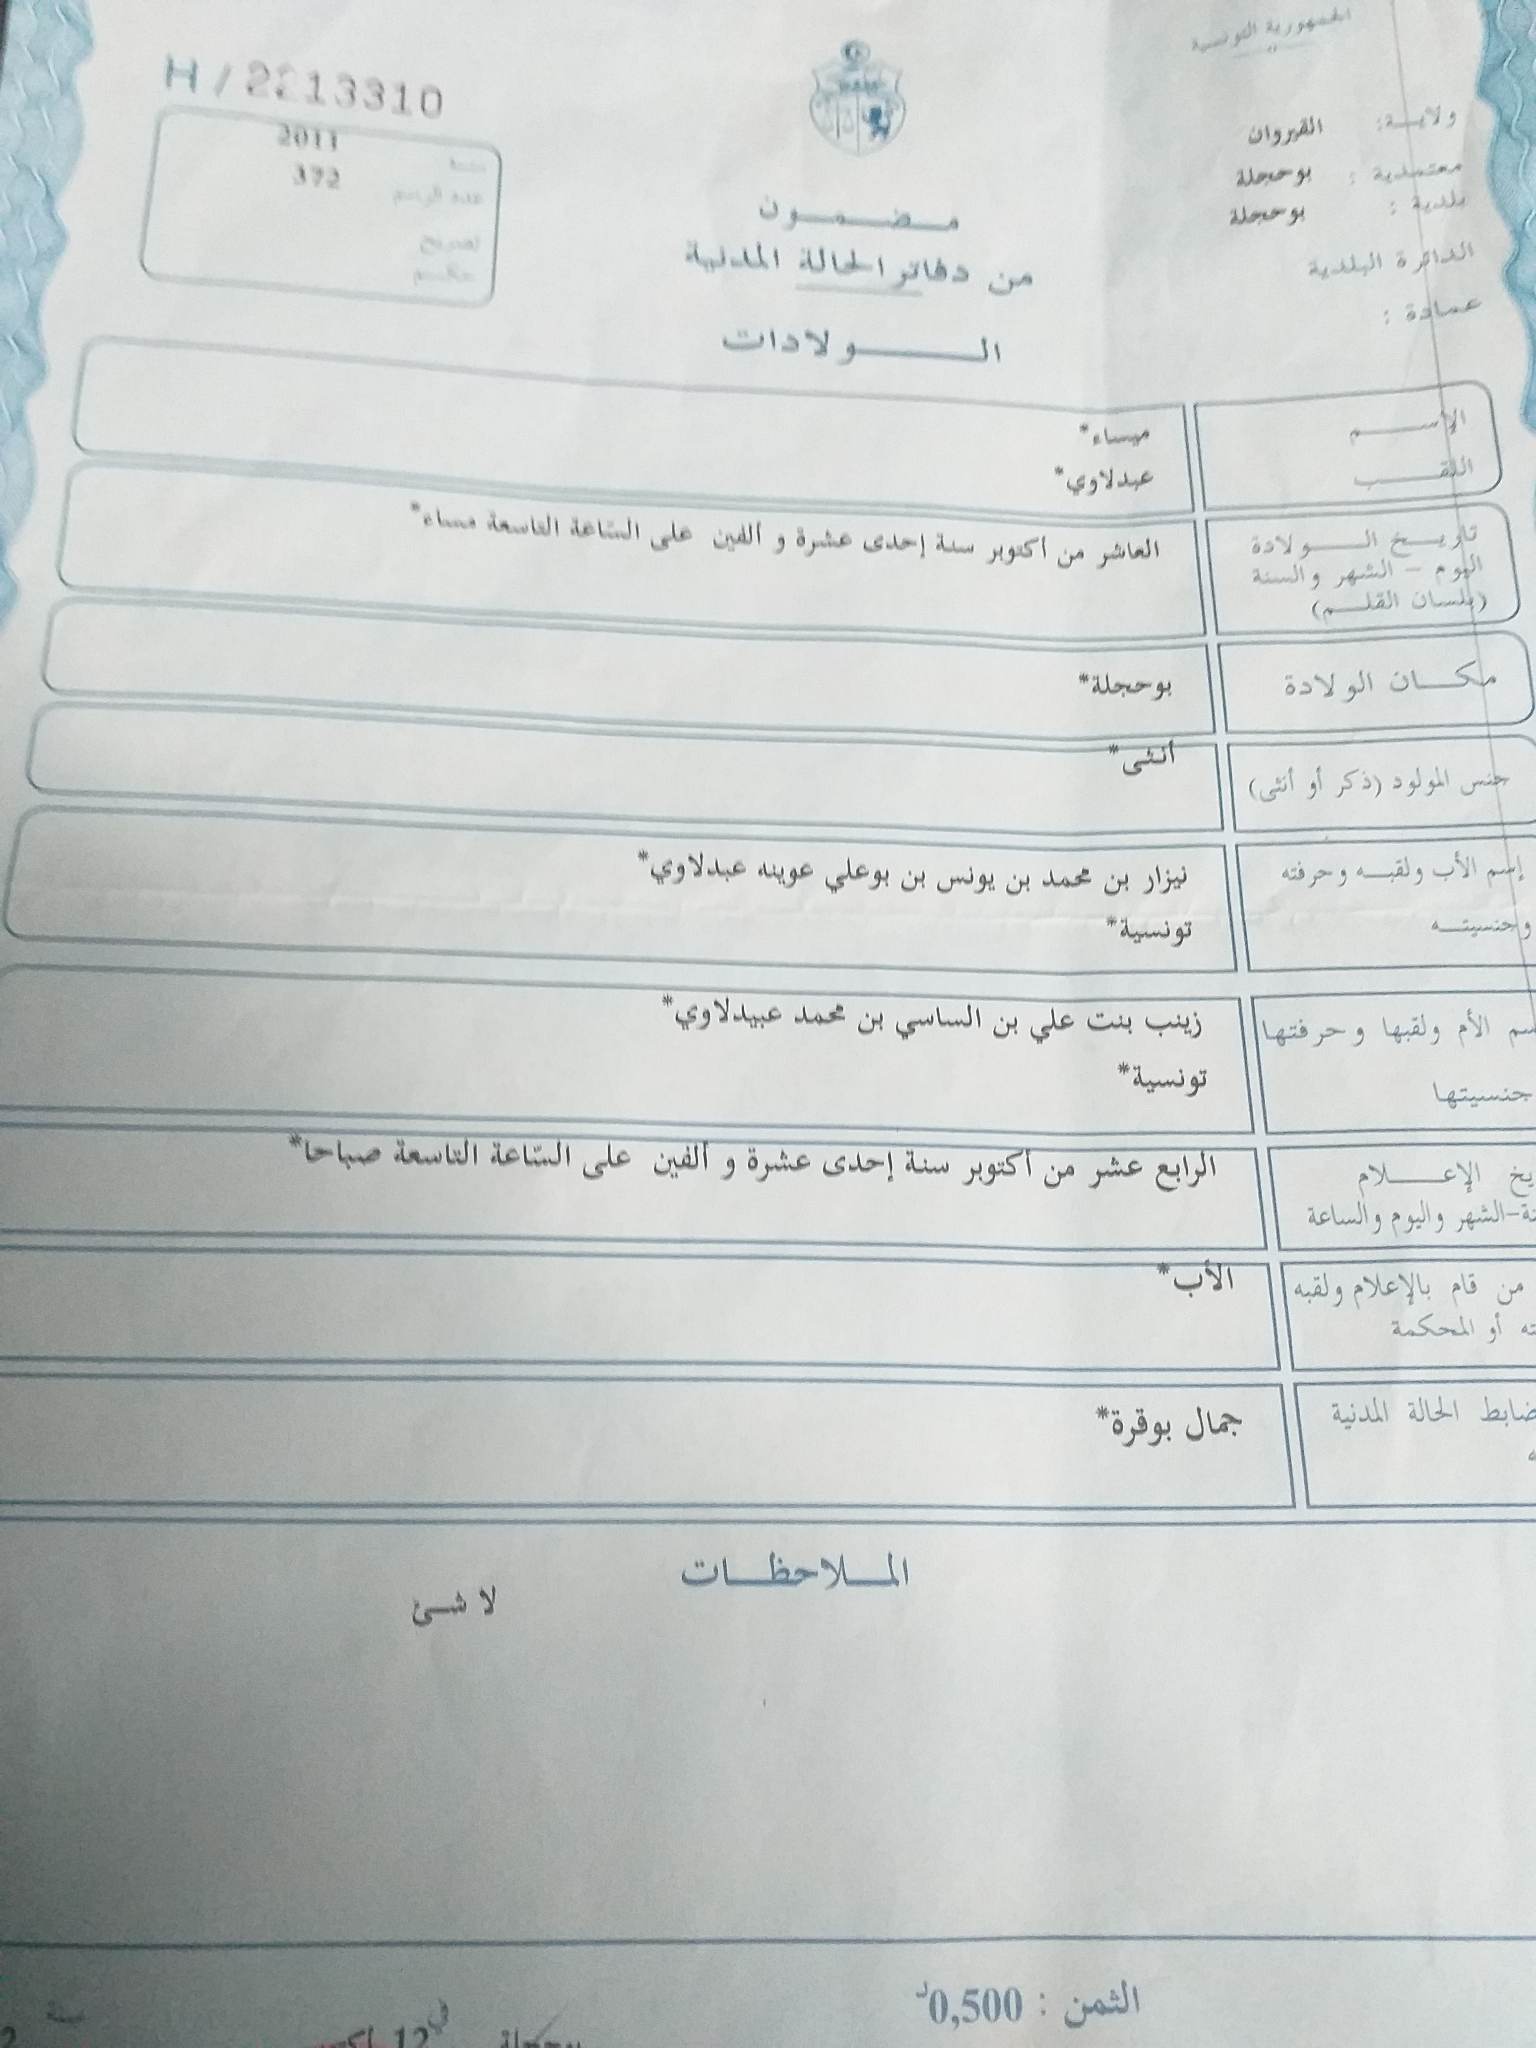 الجمهورية التونسية
ولاية: القيروان
معتمدية : بوحجلة
بلدية : بوحجلة
الدائرة البلدية
عمادة :
مضمون
من دفاتر الحالة المدنية
الولادات
H / 2213310
سنة 2011
عدد الرسم 372
تصريح
حكم
الإسم ميساء*
اللقب عبدلاوي*
تاريخ الولادة العاشر من أكتوبر سنة إحدى عشرة و ألفين على الساعة التاسعة مساء*
اليوم - الشهر والسنة
(بلسان القلم)
مكان الولادة بوحجلة*
جنس المولود (ذكر أو أنثى) أنثى*
إسم الأب ولقبه وحرفته نيزار بن محمد بن يونس بن بوعلي عوينه عبدلاوي*
وجنسيته تونسية*
سم الأم ولقبها وحرفتها زينب بنت علي بن الساسي بن محمد عبيدلاوي*
جنسيتها تونسية*
يخ الإعلام الرابع عشر من أكتوبر سنة إحدى عشرة و ألفين على السّاعة التاسعة صباحا*
نة-الشهر واليوم والساعة
من قام بالإعلام ولقبه الأب*
ته أو المحكمة
ضابط الحالة المدنية جمال بوقرة*
الملاحظات
لا شئ
الثمن : 0,500د
بوحجلة في 12 سنة